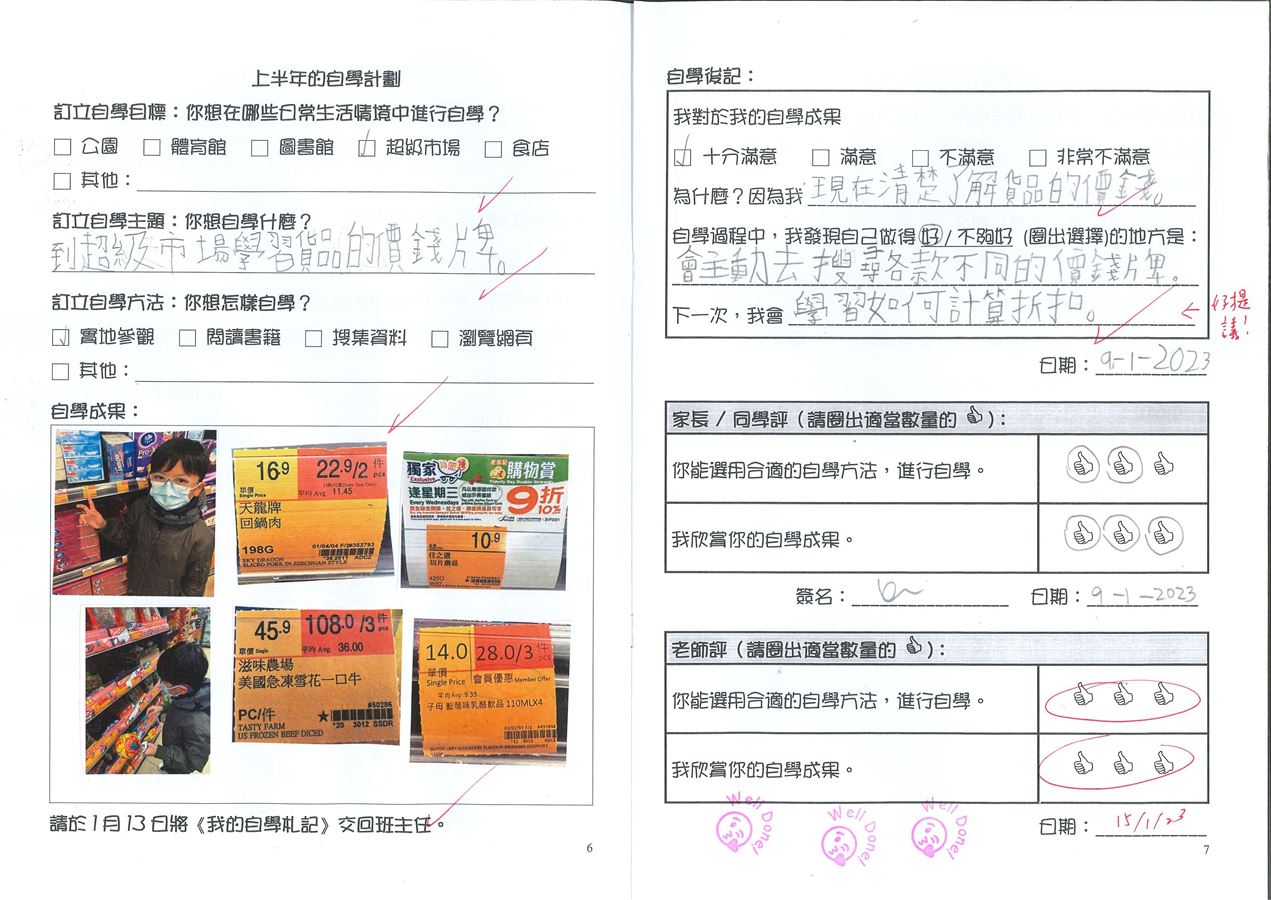 上半年的自學計劃
訂立自學目標：你想在哪些日常生活情境中進行自學？
公園 體育館 圖書館 超級市場 食店
其他：
訂立自學主題：你想自學什麼？
到超級市場學習貨品的價錢牌。
訂立自學方法：你想怎樣自學？
實地參觀 閱讀書籍 搜集資料 瀏覽網頁
其他：
自學成果：
16.9 22.9/2 件 pcs
單價 Single Price 平均 Avg: 11.45
天龍牌
回鍋肉
198G 01/04/04 F/2#352793
SKY DRAGON
SLICED PORK IN SZECHUAN STYLE
獨家 Exclusive 購物賞
Elderly Day Double Rewards
逢星期三
Every Wednesdays
9折
10%
10.9
佳之選
切片蘑菇
425G
45.9 108.0/3 件 pcs
單價 Single 平均 Avg: 36.00
滋味農場
美國急凍雪花一口牛
#50286
PC/件
*20 3012 SSDR
TASTY FARM
US FROZEN BEEF DICED
14.0 28.0/3 件 pcs
單價 會員優惠 Member Offer
Single Price
平均 Avg: 9.33
子母 藍莓味乳酪飲品 110MLX4
請於1月13日將《我的自學札記》交回班主任。
6
自學後記：
我對於我的自學成果
十分滿意 滿意 不滿意 非常不滿意
為什麼？因為我 現在清楚了解貨品的價錢。
自學過程中，我發現自己做得 好 / 不夠好 (圈出選擇)的地方是：
會主動去搜尋各款不同的價錢牌。
下一次，我會 學習如何計算折扣。
好提議！
日期：9-1-2023
家長 / 同學評（請圈出適當數量的 ）：
你能選用合適的自學方法，進行自學。
我欣賞你的自學成果。
簽名： 日期：9-1-2023
老師評（請圈出適當數量的 ）：
你能選用合適的自學方法，進行自學。
我欣賞你的自學成果。
Well Done!
Well Done!
Well Done!
日期：15/1/23
7